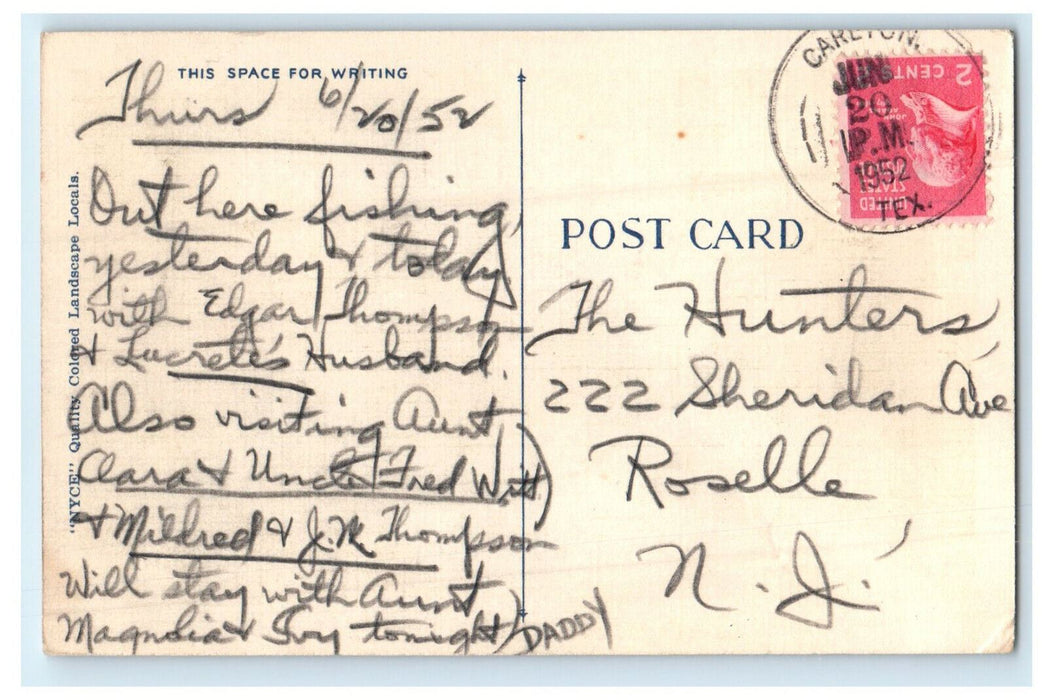 THIS SPACE FOR WRITING
Thurs 6/20/52
Out here fishing,
yesterday & today
with Edgar Thompson
& Lucrete's Husband.
Also visiting Aunt
Clara & Uncle Fred Witt
& Mildred & J.W. Thompson
Will stay with Aunt
Magnolia & Ivy tonight
DADDY
"NYCE" Quality Colored Landscape Locals.
POST CARD
The Hunters,
222 Sheridan Ave
Roselle
N. J.
CARLTON,
JUN
20
P.M.
1952
TEX.
2 CENTS
UNITED
STATES